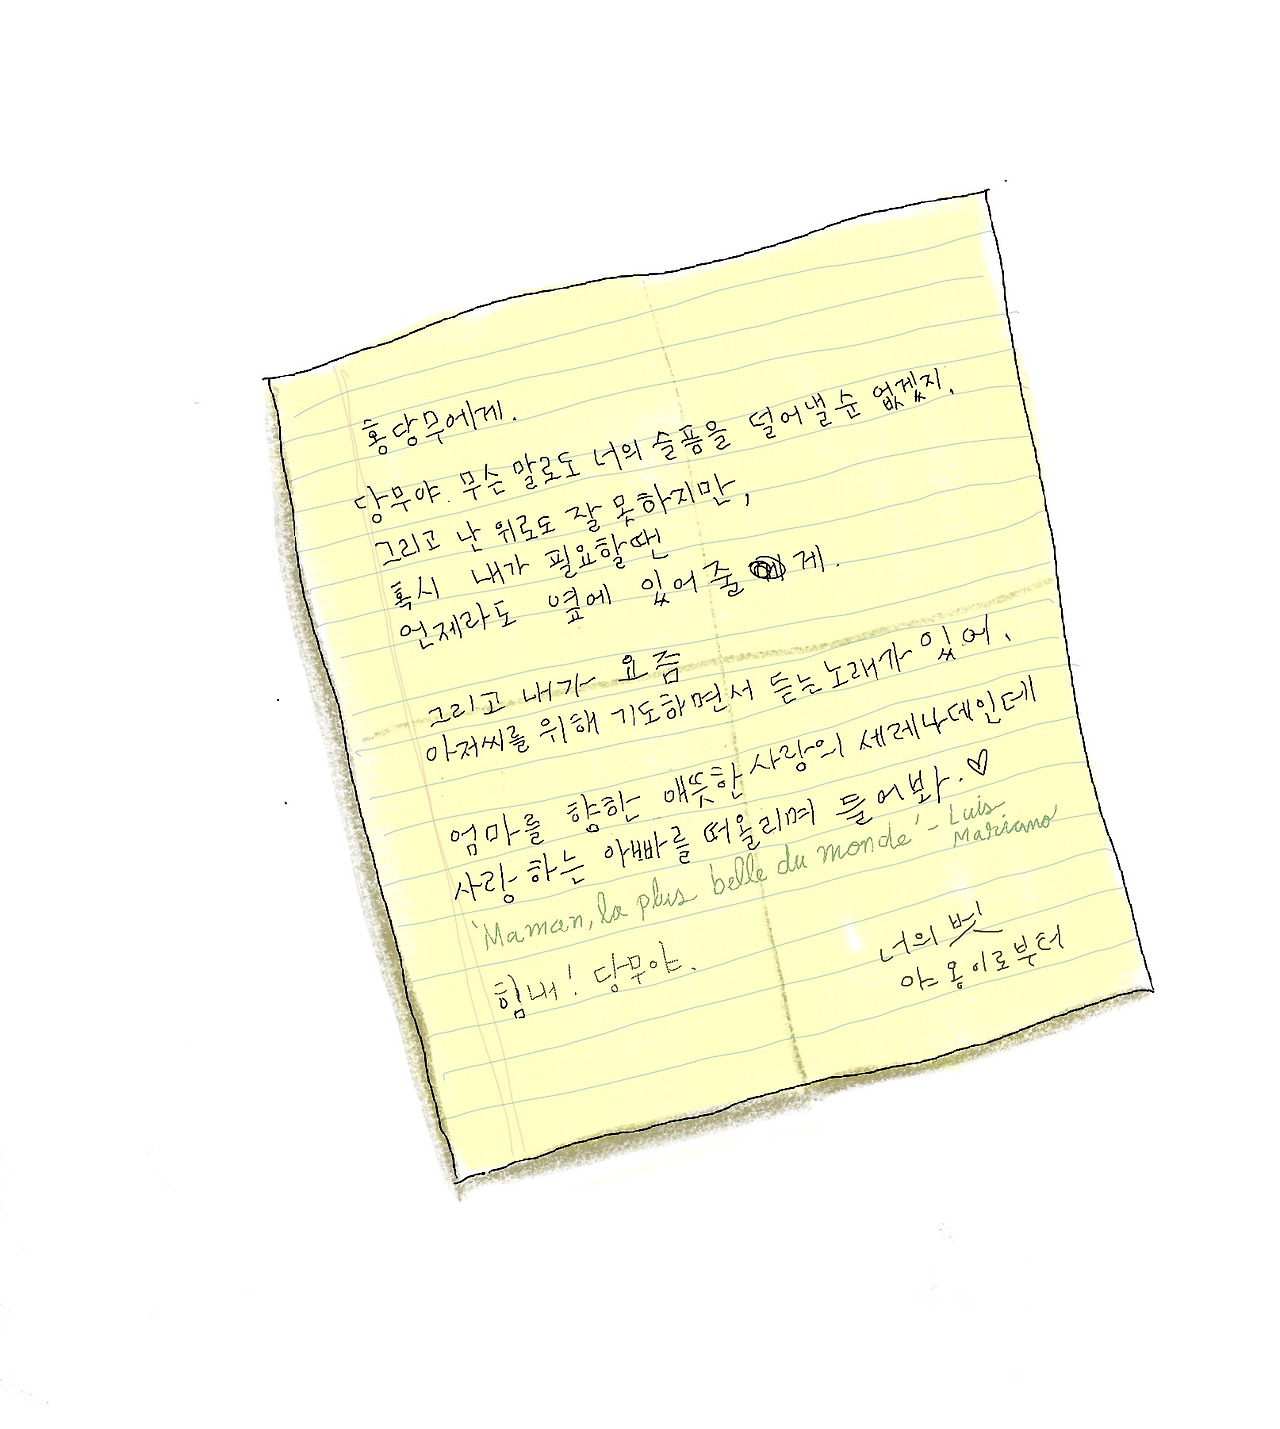 홍당무에게.
당무야. 무슨 말로도 너의 슬픔을 덜어낼 순 없겠지.
그리고 난 위로도 잘 못하지만,
혹시 내가 필요할땐
언제라도 옆에 있어줄 게.
그리고 내가 요즘
아저씨를 위해 기도하면서 듣는 노래가 있어.
엄마를 향한 애뜻한 사랑의 세레나데인데
사랑하는 아빠를 떠올리며 들어봐. ♡
'Maman, la plus belle du monde' - Luis Mariano
힘내! 당무야.
너의 벗
야옹이로부터